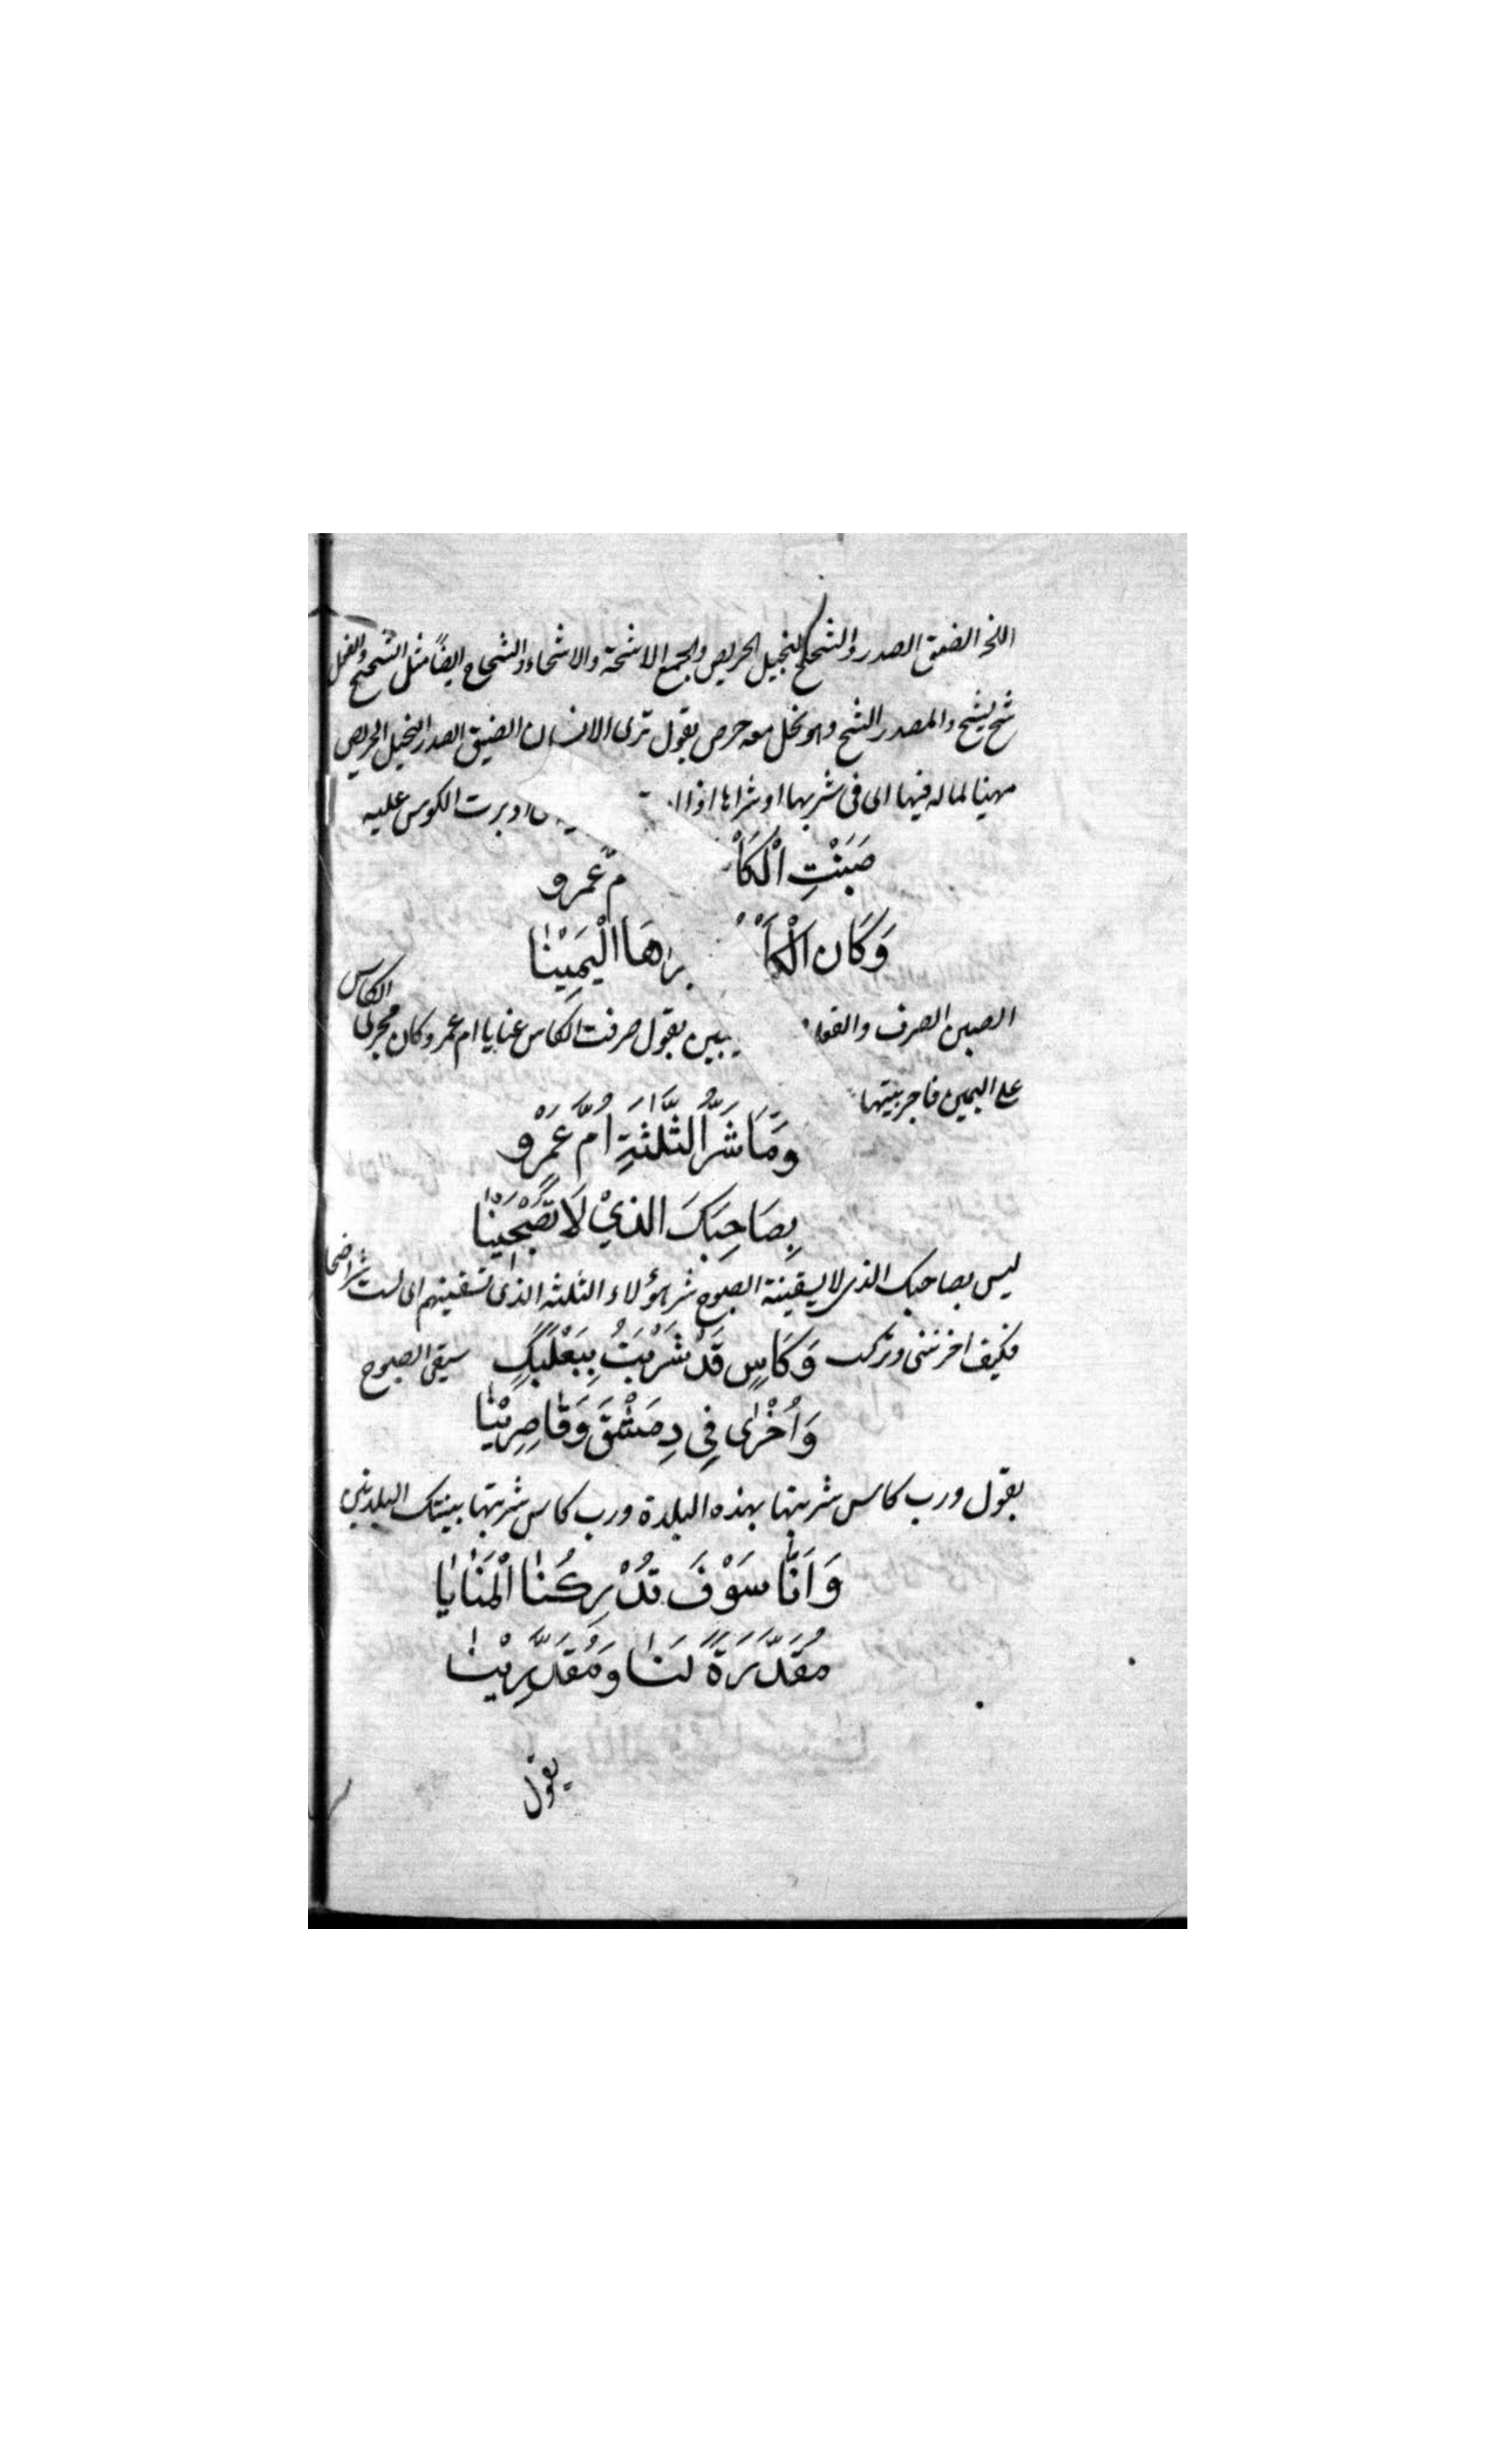 اللحز الضيق الصدر والشحيح البخيل الحريص والجمع الاشحة والاشحاء والشحاح ايضًا مثل الشحيح والفعل
شح يشح والمصدر الشح وهو بخل معه حرص يقول ترى الانسان الضيق الصدر البخيل الحريص
مهينا لماله فيها اى فى شربها او شراها اذا ادبرت الكوس عليه
صَبَنْتِ الْكَأْ مّ عَمرو
وَكَان الْكَأْ راهَا الْيَمِيْنَا
الصبن الصرف والفعل يصبن يقول صرفت الكاس عنا يا ام عمرو وكان مجرى الكاس
على اليمين فاجريتها
وَمَا شَرُّ الثَّلٰثَةِ اُمَّ عَمْرٍو
بِصَاحِبِكَ الذِيْ لَا تَصْبَحِيْنَا
ليس بصاحبك الذى لا يسقينة الصبوح شر هؤلاء الثلثة الذى تسقينهم اى لست شر اصحا
فكيف اخرتنى وتركت سقى الصبوح
وَكَاسٍ قَدْ شَرِبْتُ بِبَعْلَبَكٍ
وَاُخْرٰى فِي دِمَشْقَ وَقَاصِرِيْنَا
يقول ورب كاس شربتها بهذه البلدة ورب كاس شربتها بتينك البلدتين
وَاَنَّا سَوْفَ تُدْرِكُنَا الْمَنَايَا
مُقَدَّرَةً لَنَا وَمُقَدَّرِيْنَا
يقول